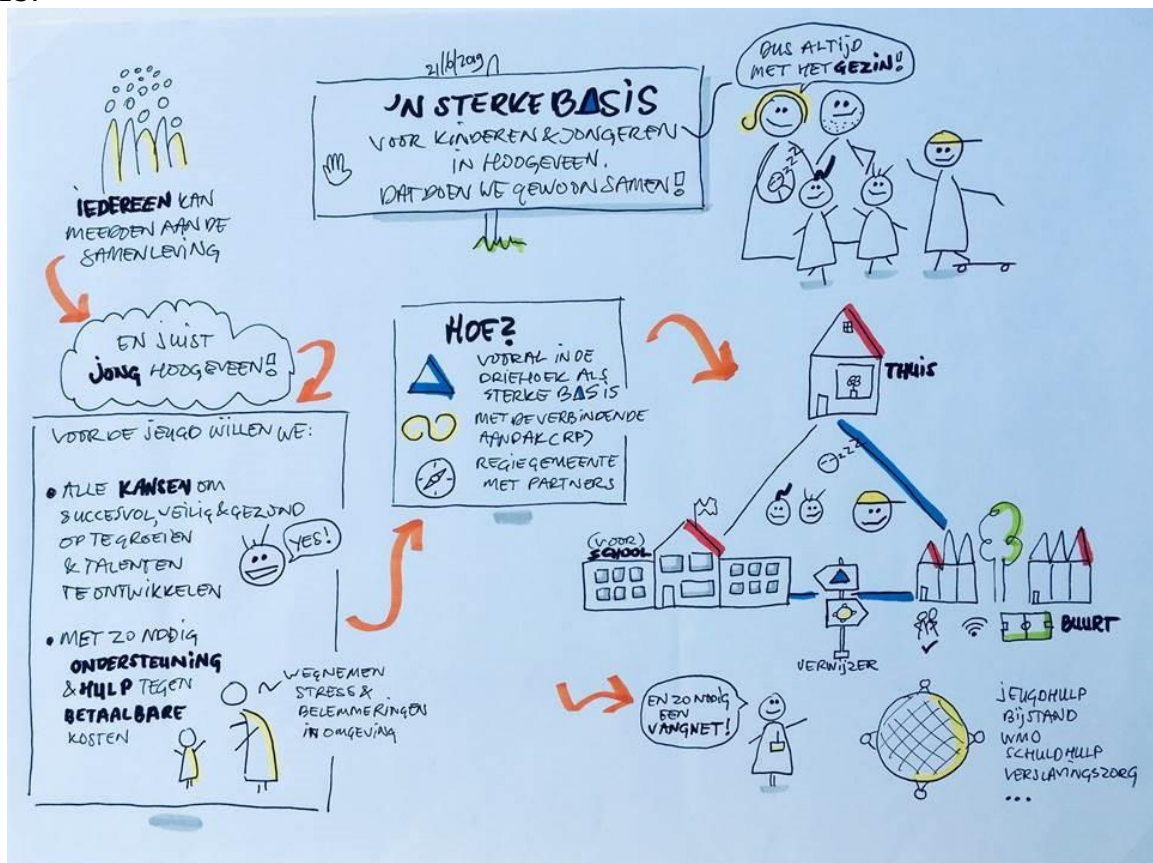 21/6/2019
'N STERKE BASIS
VOOR KINDEREN & JONGEREN
IN HOOGEVEEN.
DAT DOEN WE GEWOON SAMEN!
DUS ALTIJD
MET HET GEZIN!
IEDEREEN KAN
MEEDOEN AAN DE
SAMENLEVING
EN JUIST
JONG HOOGEVEEN!
VOOR DE JEUGD WILLEN WE:
• ALLE KANSEN OM
SUCCESVOL, VEILIG & GEZOND
OP TE GROEIEN
& TALENTEN
TE ONTWIKKELEN
YES!
• MET ZO NODIG
ONDERSTEUNING
& HULP TEGEN
BETAALBARE
KOSTEN
WEGNEMEN
STRESS &
BELEMMERINGEN
IN OMGEVING
HOE?
VOORAL IN DE
DRIEHOEK ALS
STERKE BASIS
MET DE VERBINDENDE
AANPAK (RP)
REGIEGEMEENTE
MET PARTNERS
THUIS
ZZZ
ZZZ
(VOOR)
SCHOOL
VERWIJZER
BUURT
EN ZO NODIG
EEN
VANGNET!
JEUGDHULP
BIJSTAND
WMO
SCHULDHULP
VERSLAVINGSZORG
...